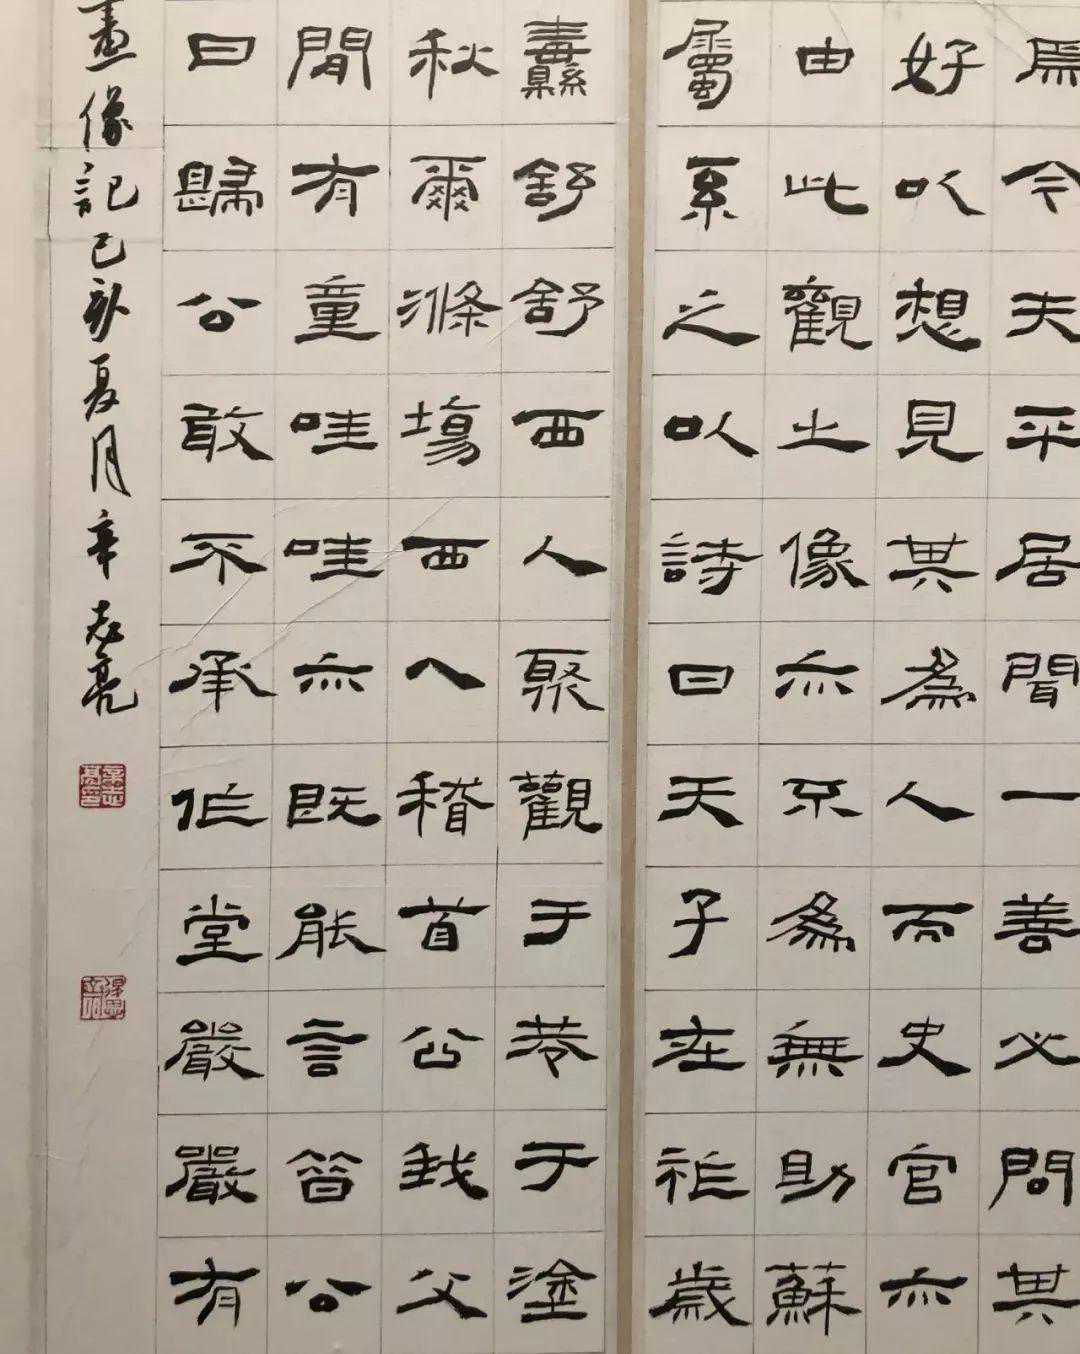 焉今夫平居聞一善必問其
好以想見其為人而史官亦
由此觀之像亦不為無助蘇
屬系之以詩曰天子在祚歲
纛舒舒西人聚觀于巷于塗
秋爾滌場西人稽首公我父
閒有童哇哇亦既能言昔公
曰歸公敢不承作堂嚴嚴有
畫像記己亥夏月辛志亮